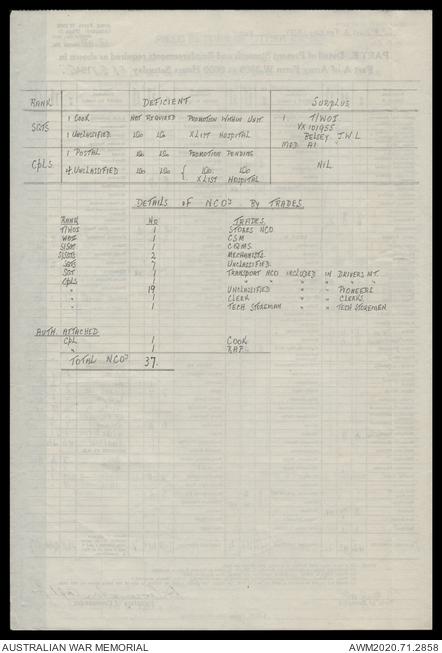 RANK DEFICIENT SURPLUS
SGTS 1 COOK NOT REQUIRED PROMOTION WITHIN UNIT 1 T/WOI
VX 101955
1 UNCLASSIFIED DO DO X LIST HOSPITAL BELSEY J.W.L
MED A1
CPLS 1 POSTAL DO DO PROMOTION PENDING NIL
4 UNCLASSIFIED DO DO { DO DO
X LIST HOSPITAL
DETAILS OF NCOS BY TRADES.
RANK NO TRADES.
T/WOI 1 STORES NCO
WOII 1 CSM
S/SGT 1 CQMS
S/SGTS 2 MECHANISTS
SGTS 7 UNCLASSIFIED
SGT 1 TRANSPORT NCO INCLUDED IN DRIVERS MT.
CPLS 1 " " " "
" 19 UNCLASSIFIED " " PIONEERS
" 1 CLERK " " CLERKS
" 1 TECH STOREMAN " " TECH STOREMEN
AUTH. ATTACHED.
CPL 1 COOK
" 1 RAP
TOTAL NCOS 37.
AUSTRALIAN WAR MEMORIAL AWM2020.71.2858